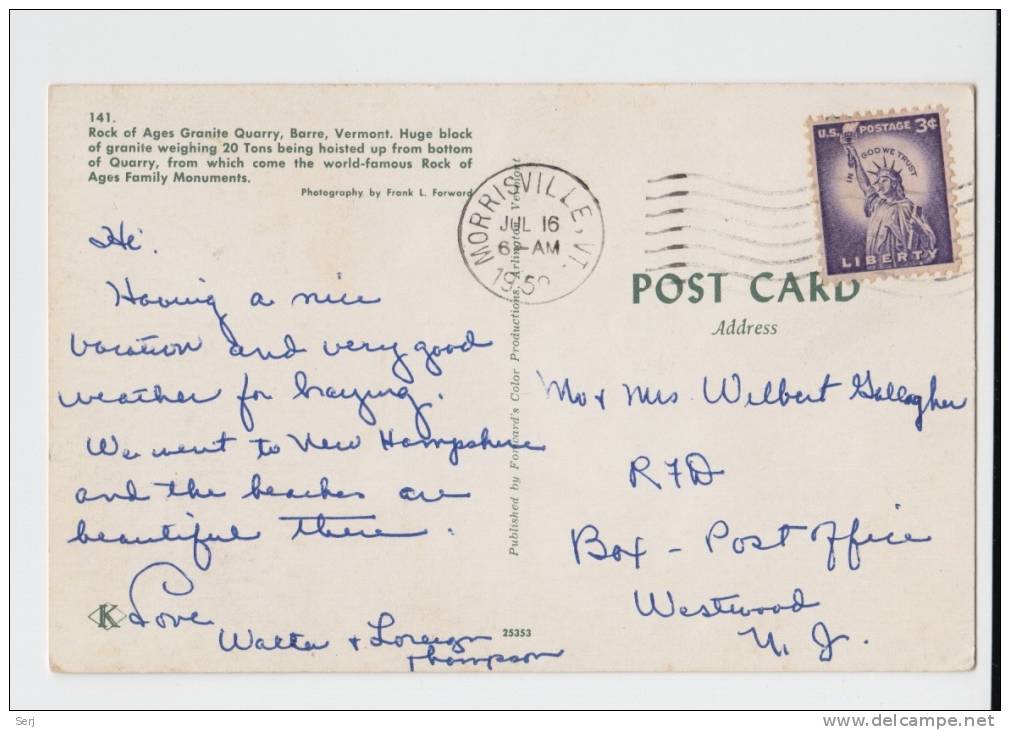 141.
Rock of Ages Granite Quarry, Barre, Vermont. Huge block
of granite weighing 20 Tons being hoisted up from bottom
of Quarry, from which come the world-famous Rock of
Ages Family Monuments.
Photography by Frank L. Forward
Hi.
Having a nice
vacation and very good
weather for
We went to New Hampshire
and the beaches are
beautiful there.
Love
Walter &
Thompson
K
25353
Published by Forward's Color Productions, Arlington, Vermont
MORRISVILLE, VT.
JUL 16
6 - AM
195
U.S. POSTAGE 3¢
IN GOD WE TRUST
LIBERTY
POST CARD
Address
Mr & Mrs Wilbert Gallagher
RFD
Box - Post Office
Westwood
N. J.
Serj
www.delcampe.net